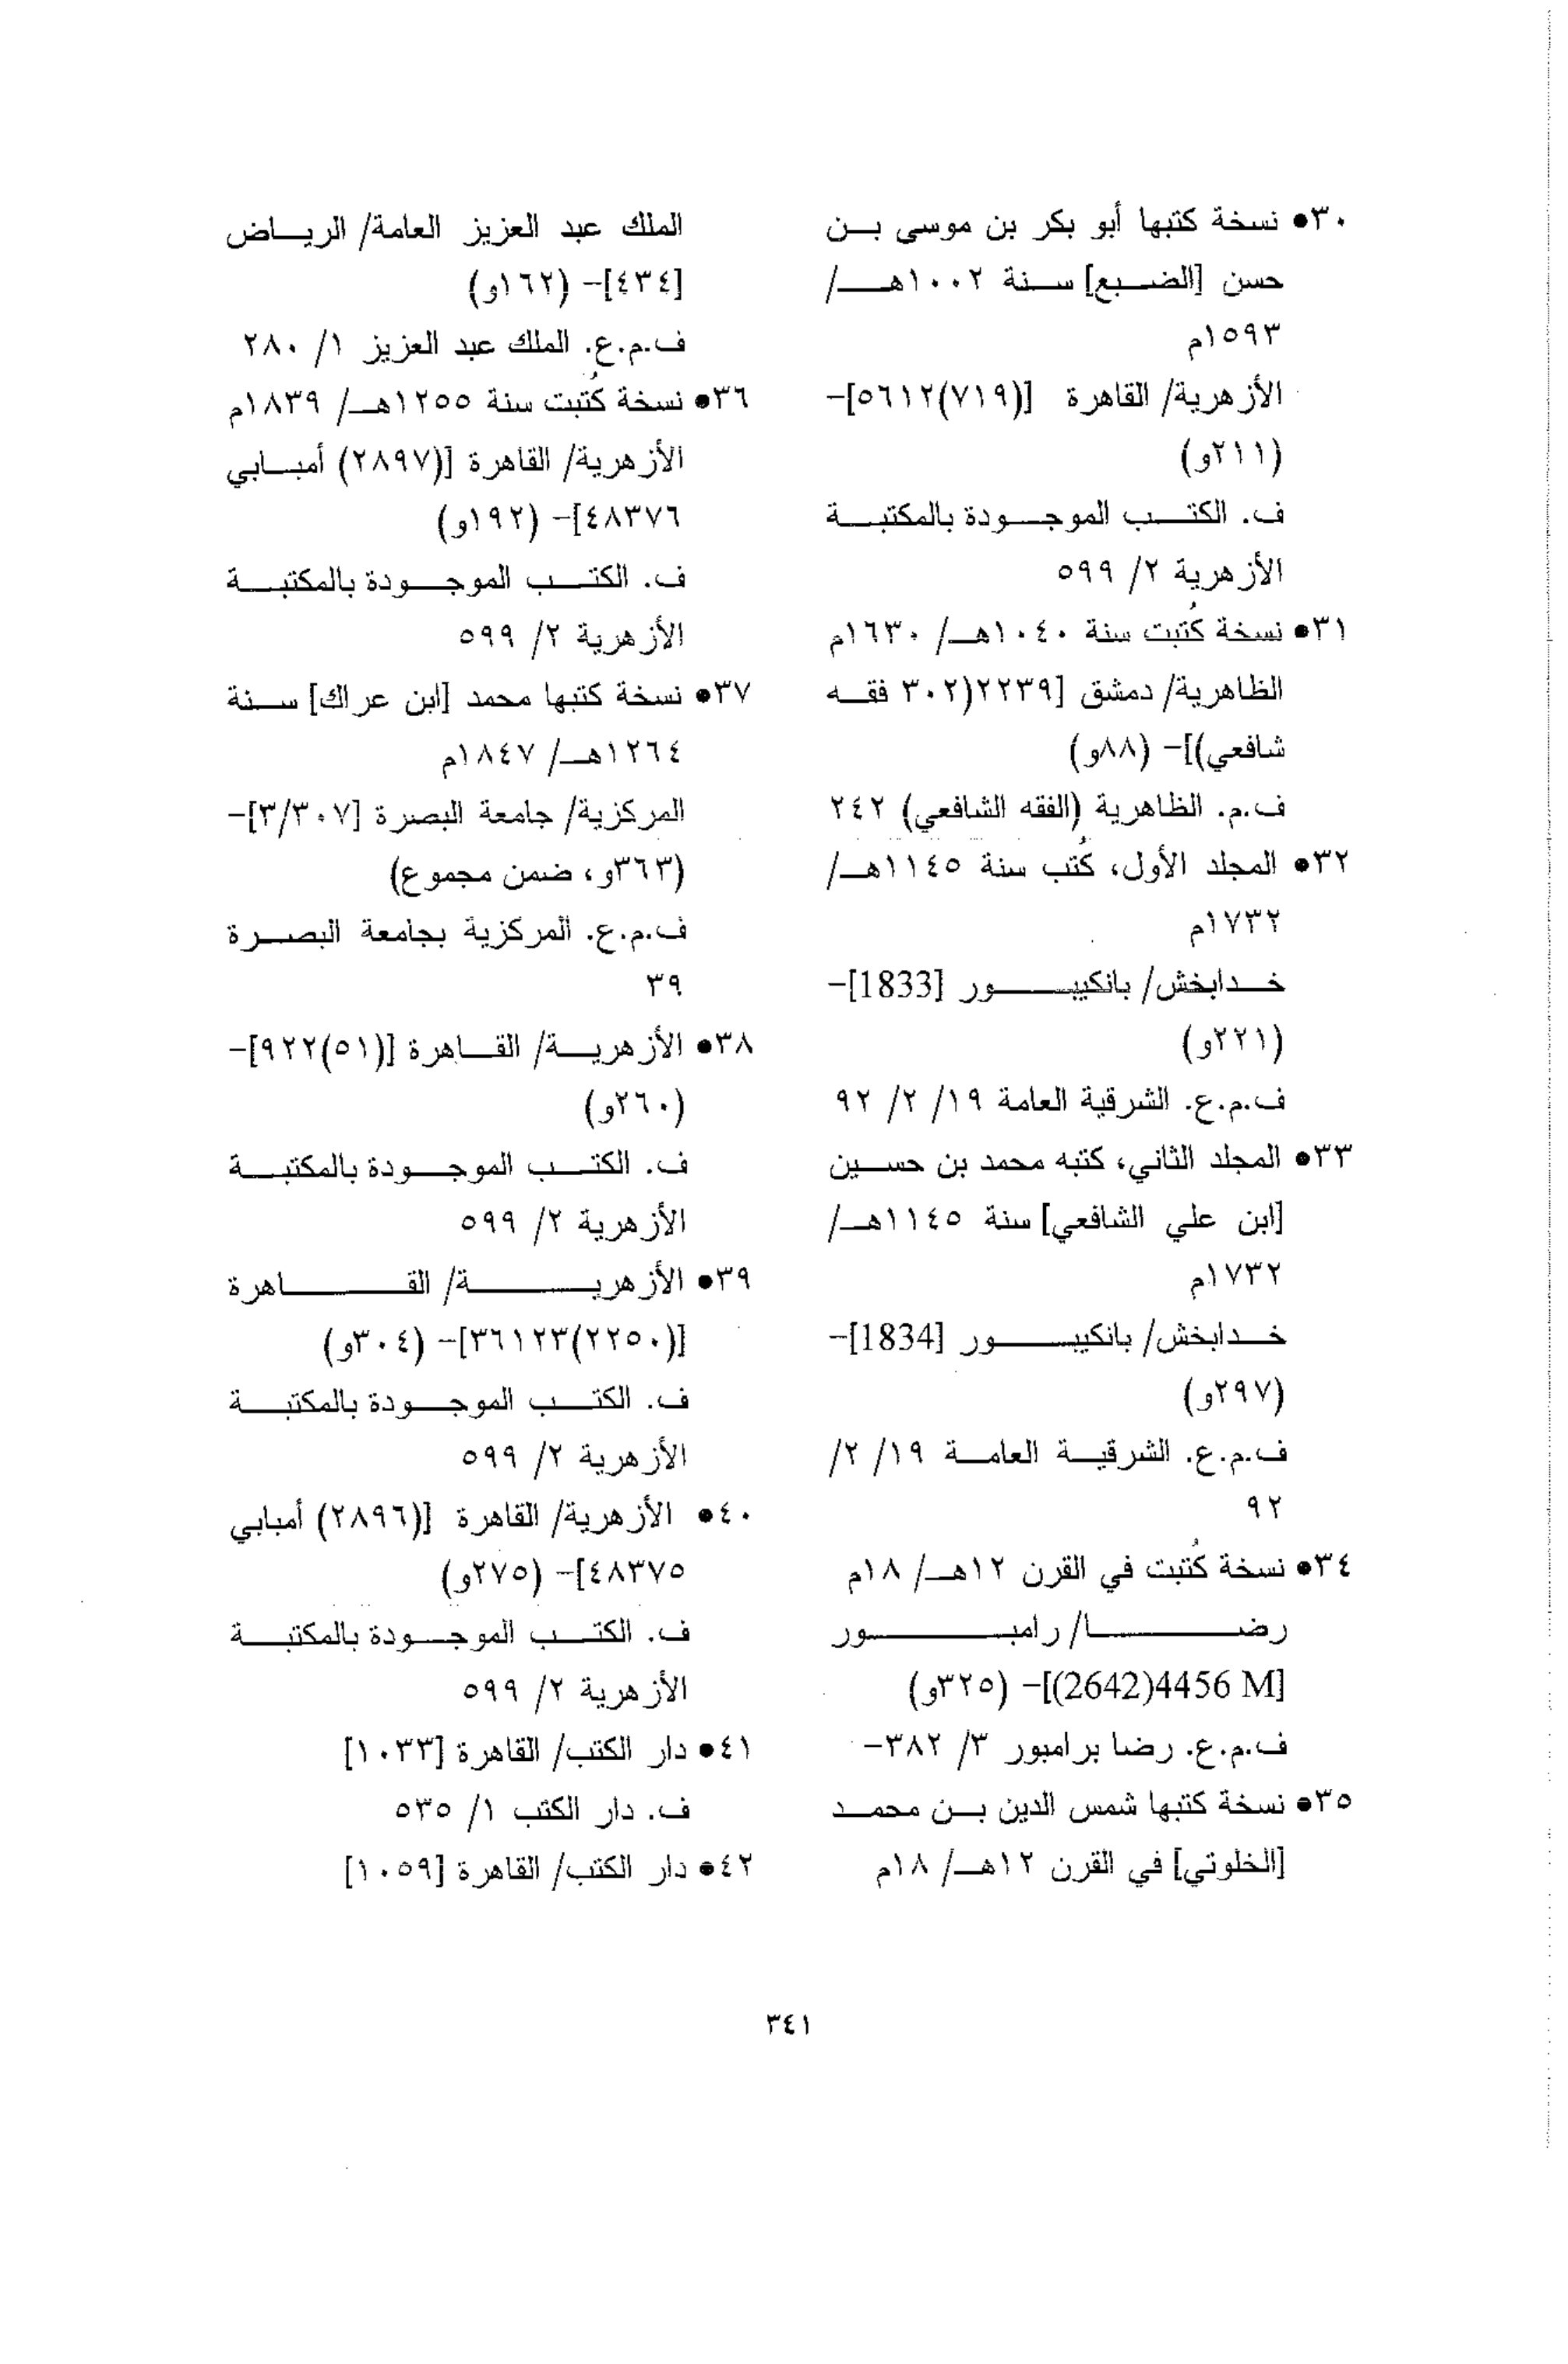 ٣٠• نسخة كتبها أبو بكر بن موسى بن
حسن [الضبع] سنة ١٠٠٢هـ/
١٥٩٣م
الأزهرية/ القاهرة [(٧١٩)٥٦١٢]-
(٢١١و)
ف. الكتب الموجودة بالمكتبة
الأزهرية ٢/ ٥٩٩
٣١• نسخة كُتبت سنة ١٠٤٠هـ/ ١٦٣٠م
الظاهرية/ دمشق [٢٢٣٩(٣٠٢ فقه
شافعي)]- (٨٨و)
ف.م. الظاهرية (الفقه الشافعي) ٢٤٢
٣٢• المجلد الأول، كُتب سنة ١١٤٥هـ/
١٧٣٢م
خدابخش/ بانكيبور [1833]-
(٢٢١و)
ف.م.ع. الشرقية العامة ١٩/ ٢/ ٩٢
٣٣• المجلد الثاني، كتبه محمد بن حسين
[ابن علي الشافعي] سنة ١١٤٥هـ/
١٧٣٢م
خدابخش/ بانكيبور [1834]-
(٢٩٧و)
ف.م.ع. الشرقية العامة ١٩/ ٢/
٩٢
٣٤• نسخة كُتبت في القرن ١٢هـ/ ١٨م
رضا/ رامبور
[4456 M(2642)]- (٣٢٥و)
ف.م.ع. رضا برامبور ٣/ ٣٨٢-
٣٥• نسخة كتبها شمس الدين بن محمد
[الخلوتي] في القرن ١٢هـ/ ١٨م
الملك عبد العزيز العامة/ الرياض
[٤٣٤]- (١٦٢و)
ف.م.ع. الملك عبد العزيز ١/ ٢٨٠
٣٦• نسخة كُتبت سنة ١٢٥٥هـ/ ١٨٣٩م
الأزهرية/ القاهرة [(٢٨٩٧) أمبابي
٤٨٣٧٦]- (١٩٢و)
ف. الكتب الموجودة بالمكتبة
الأزهرية ٢/ ٥٩٩
٣٧• نسخة كتبها محمد [ابن عراك] سنة
١٢٦٤هـ/ ١٨٤٧م
المركزية/ جامعة البصرة [٣/٣٠٧]-
(٣٦٣و، ضمن مجموع)
ف.م.ع. المركزية بجامعة البصرة
٣٩
٣٨• الأزهرية/ القاهرة [(٥١)٩٢٢]-
(٢٦٠و)
ف. الكتب الموجودة بالمكتبة
الأزهرية ٢/ ٥٩٩
٣٩• الأزهرية/ القاهرة
[(٢٢٥٠)٣٦١٢٣]- (٣٠٤و)
ف. الكتب الموجودة بالمكتبة
الأزهرية ٢/ ٥٩٩
٤٠• الأزهرية/ القاهرة [(٢٨٩٦) أمبابي
٤٨٣٧٥]- (٢٧٥و)
ف. الكتب الموجودة بالمكتبة
الأزهرية ٢/ ٥٩٩
٤١• دار الكتب/ القاهرة [١٠٣٣]
ف. دار الكتب ١/ ٥٣٥
٤٢• دار الكتب/ القاهرة [١٠٥٩]
٣٤١